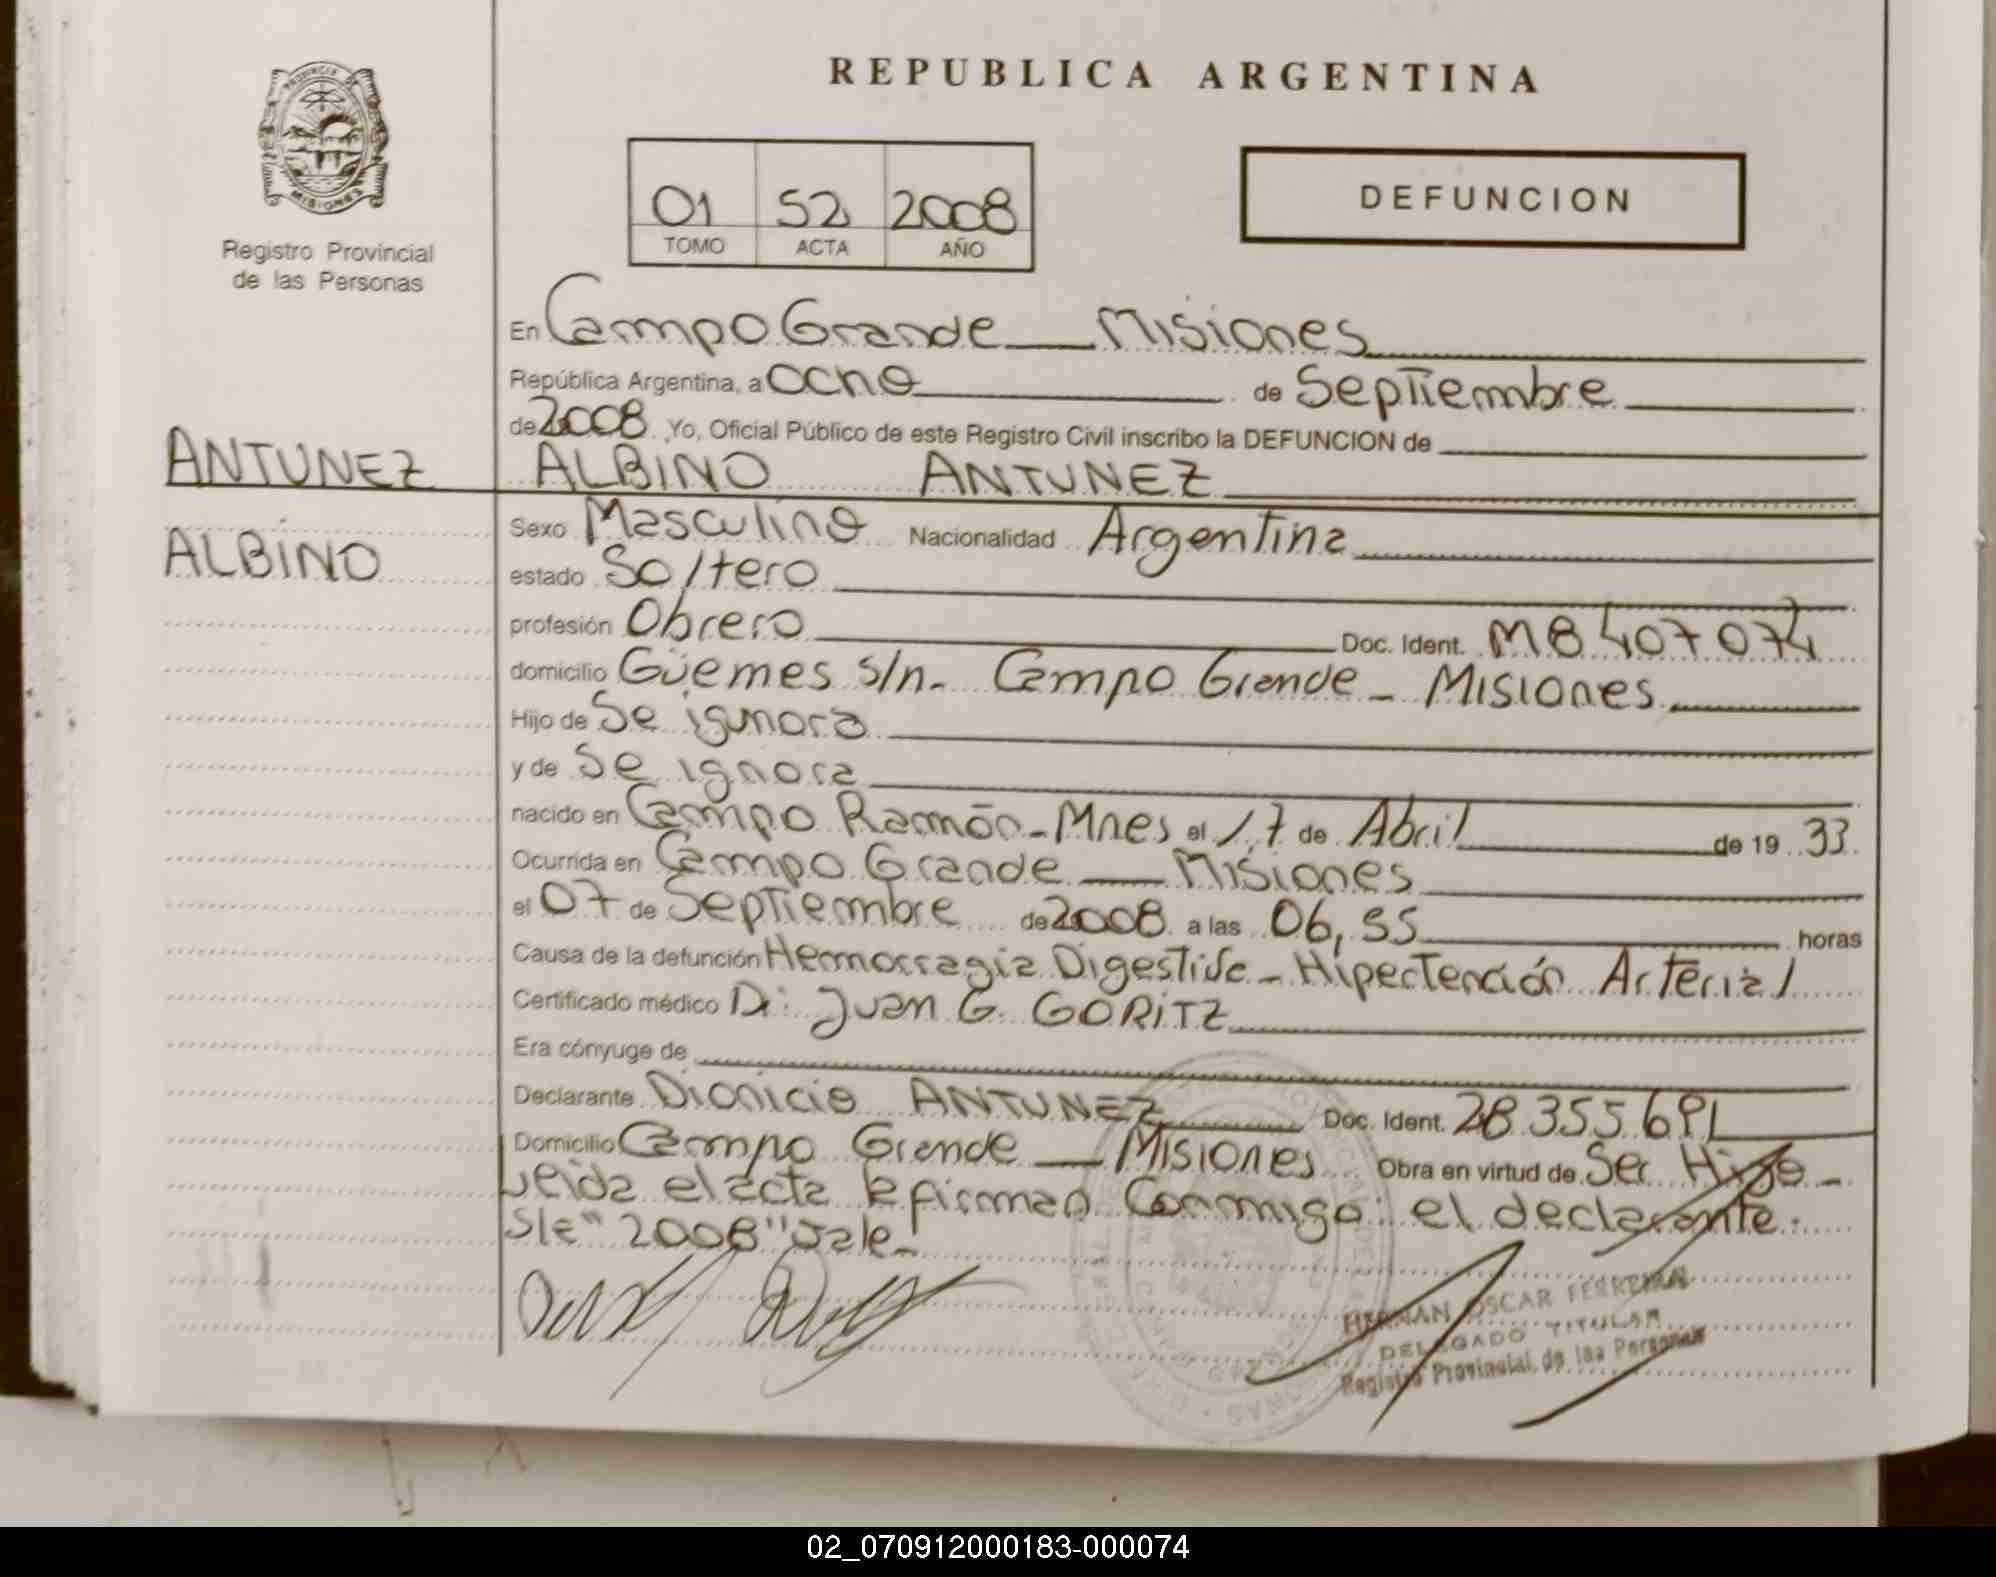 REPUBLICA ARGENTINA
PROVINCIA DE
MISIONES
Registro Provincial
de las Personas
01 52 2008
TOMO ACTA AÑO
DEFUNCION
En Campo Grande Misiones
República Argentina, a ocho de Septiembre
de 2008 Yo, Oficial Público de este Registro Civil inscribo la DEFUNCION de
ANTUNEZ
ALBINO
ALBINO ANTUNEZ
Sexo Masculino Nacionalidad Argentina
estado Soltero
profesión Obrero Doc. Ident. M8407074
domicilio Güemes s/n. Campo Grande - Misiones
Hijo de Se ignora
y de Se ignora
nacido en Campo Ramón - Mnes el 17 de Abril de 19 33
Ocurrida en Campo Grande Misiones
el 07 de Septiembre de 2008 a las 06,55 horas
Causa de la defunción Hemorragia Digestiva - Hipertención Arterial
Certificado médico Dr. Juan G. GORITZ
Era cónyuge de
Declarante Dionicio ANTUNEZ Doc. Ident. 28.355.691
Domicilio Campo Grande Misiones Obra en virtud de Ser Hijo -
Leida el acta la firman Conmigo: el declarante.
S/e "2008" vale.
HERNAN OSCAR FERREIRA
DELEGADO TITULAR
Registro Provincial de las Personas
02_070912000183-000074